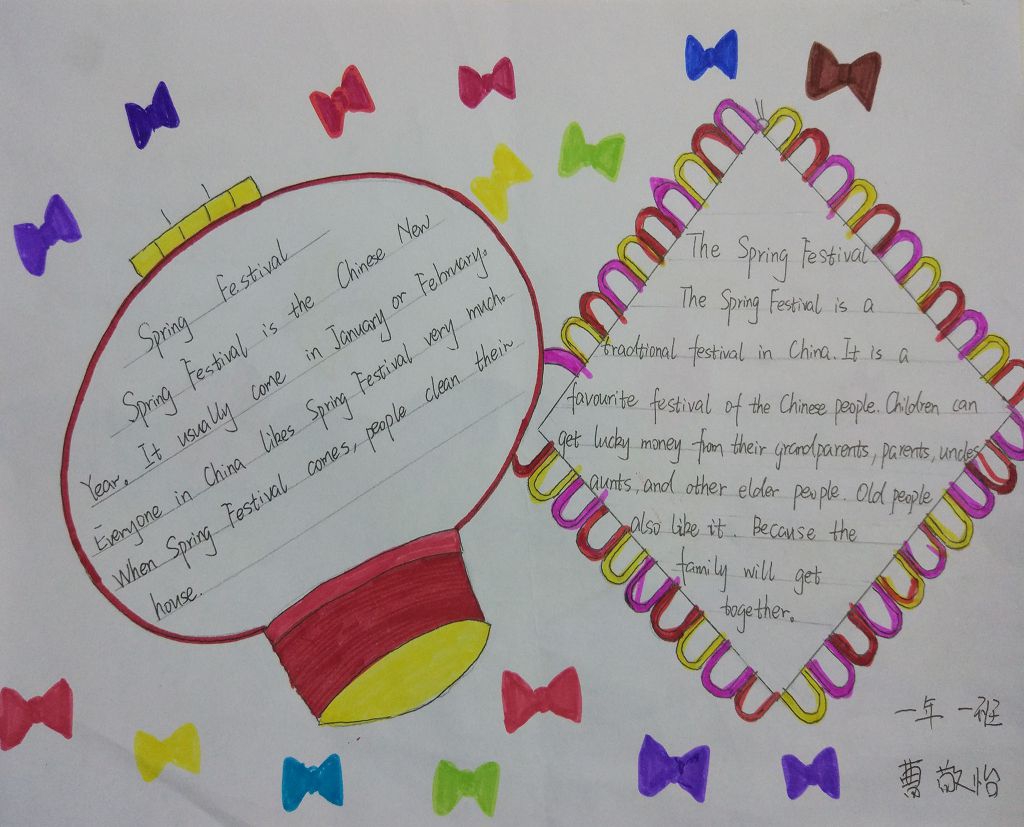 Spring Festival
Spring Festival is the Chinese New
Year. It usually come in January or February.
Everyone in China likes Spring Festival very much.
When Spring Festival comes, people clean their
house.
The Spring Festival
The Spring Festival is a
tradtional festival in China. It is a
favourite festival of the Chinese people. Children can
get lucky money from their grandparents, parents, uncles
aunts, and other elder people. Old people
also like it. Because the
family will get
together.
一年一班
曹敬怡